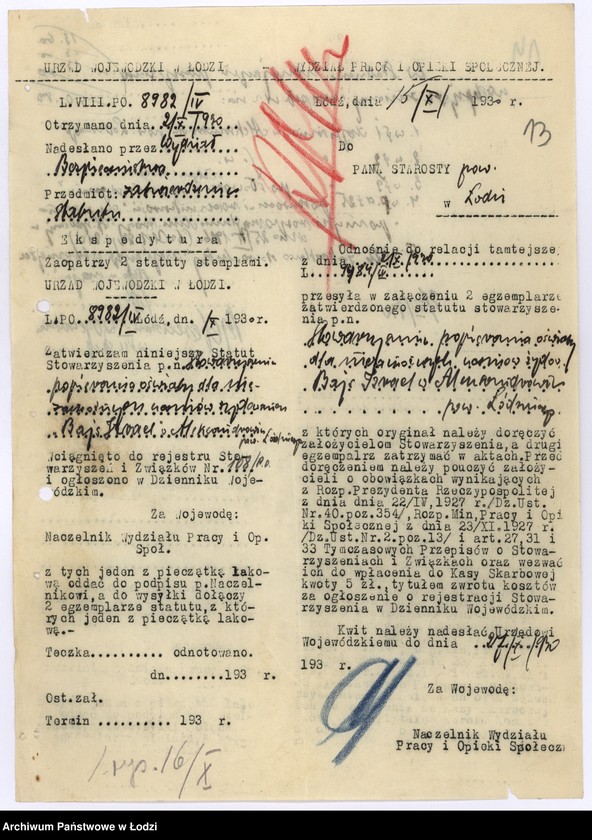 URZĄD WOJEWÓDZKI W ŁODZI. WYDZIAŁ PRACY I OPIEKI SPOŁECZNEJ.
L.VIII.PO. 8982/IV
Otrzymano dnia. 2/X.1930
Nadesłano przez Wydział
Bezpieczeństwa
Przedmiot: zatwierdzenie
statutu
Ekspedytura
Zaopatrzy 2 statuty stemplami.
URZĄD WOJEWÓDZKI W ŁODZI.
L.PO. 8982/IV Łódź, dn. /X 1930 r.
Zatwierdzam niniejszy Statut
Stowarzyszenia p.n. Stowarzyszenie
popierania oświaty dla nie-
zamożnych uczniów żydowskich
"Bajs Israel" w Aleksandrowie
pow. Łódzkiego
Wciągnięto do rejestru Sto-
warzyszeń i Związków Nr. P.O.
i ogłoszono w Dzienniku Woje-
wódzkim.
Za Wojewodę:
Naczelnik Wydziału Pracy i Op.
Społ.
z tych jeden z pieczątką lako-
wą oddać do podpisu p.Naczel-
nikowi, a do wysyłki dołączy
2 egzemplarze statutu, z któ-
rych jeden z pieczątką lako-
wą.-
Teczka.......... odnotowano.
dn........193 r.
Ost.zał.
Termin .......... 193 r.
16/X
Łódź, dnia 15/X/ 1930 r.
13
Do
PANA STAROSTY pow.
w Łodzi
Odnośnie do relacji tamtejsze
z dnia 2/X.1930
L.
przesyła w załączeniu 2 egzemplarze
zatwierdzonego statutu stowarzysze-
nia p.n.
Stowarzyszenie popierania oświaty
dla niezamożnych uczniów żydow.
"Bajs Israel" w Aleksandrowie
pow. Łódzkiego
z których oryginał należy doręczyć
założycielom Stowarzyszenia, a drugi
egzemplarz zatrzymać w aktach. Przed
doręczeniem należy pouczyć założy-
cieli o obowiązkach wynikających
z Rozp.Prezydenta Rzeczypospolitej
z dnia dnia 22/IV,1927 r./Dz.Ust.
Nr.40.poz.354/,Rozp.Min,Pracy i Opi
ki Społecznej z dnia 23/XI.1927 r.
/Dz.Ust.Nr.2.poz.13/ i art.27,31 i
33 Tymczasowych Przepisów o Stowa-
rzyszeniach i Związkach oraz wezwać
ich do wpłacenia do Kasy Skarbowej
kwoty 5 zł., tytułem zwrotu kosztów
za ogłoszenie o rejestracji Stowa-
rzyszenia w Dzienniku Wojewódzkim.
Kwit należy nadesłać Urzędowi
Wojewódzkiemu do dnia ..27/X.1930
193 r.
Za Wojewodę:
Naczelnik Wydziału
Pracy i Opieki Społecz
Archiwum Państwowe w Łodzi